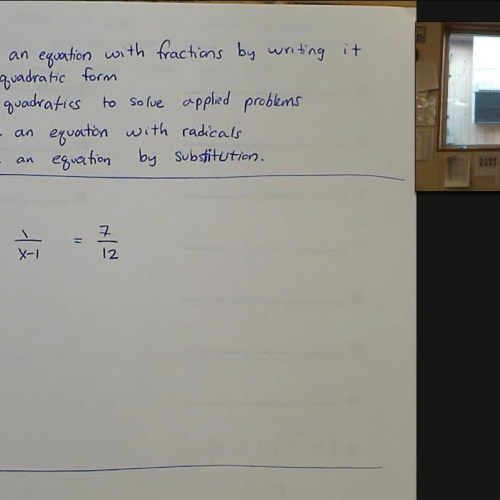 an equation with fractions by writing it
quadratic form
quadratics to solve applied problems
an equation with radicals
an equation by substitution.
1/x-1 = 7/12